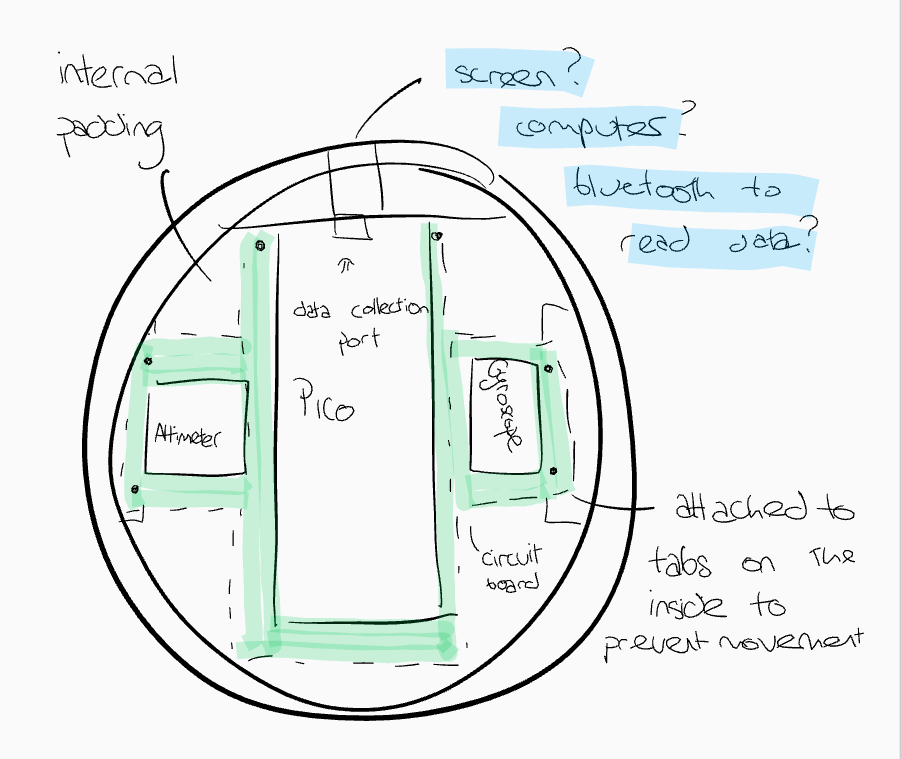 internal
padding
screen?
computer?
bluetooth to
read data?
data collection
port
Pico
Altimeter
Gyroscope
circuit
board
attached to
tabs on the
inside to
prevent movement